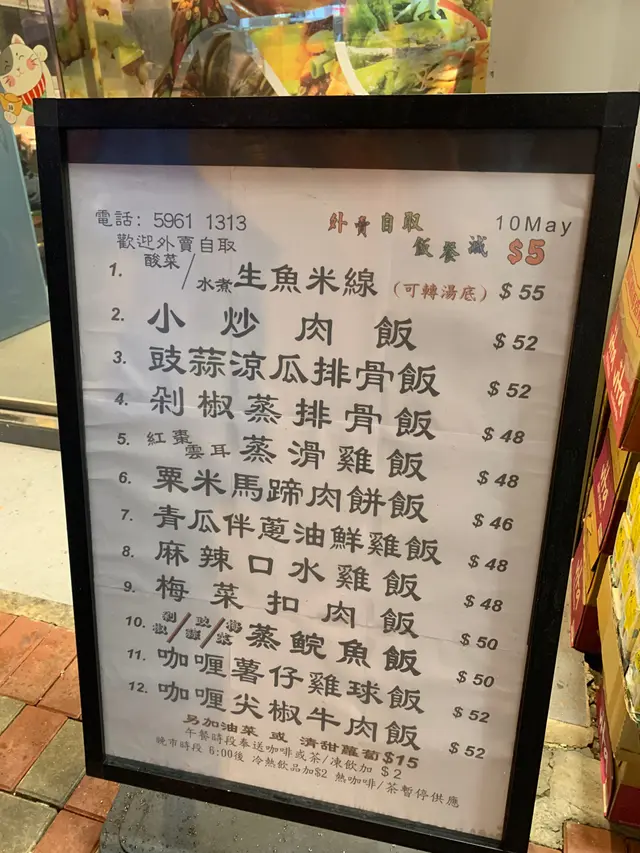 電話: 5961 1313
歡迎外賣自取
外賣自取
飯餐減 $5
10May
1. 酸菜/水煮生魚米線 (可轉湯底) $55
2. 小炒肉飯 $52
3. 豉蒜涼瓜排骨飯 $52
4. 剁椒蒸排骨飯 $48
5. 紅棗雲耳蒸滑雞飯 $48
6. 粟米馬蹄肉餅飯 $46
7. 青瓜伴蔥油鮮雞飯 $48
8. 麻辣口水雞飯 $48
9. 梅菜扣肉飯 $50
10. 剁椒/豉蒜/梅菜蒸鯇魚飯 $50
11. 咖喱薯仔雞球飯 $52
12. 咖喱尖椒牛肉飯 $52
另加油菜 或 清甜蘿蔔$15
午餐時段奉送咖啡或茶/凍飲加 $2
晚市時段 6:00後 冷熱飲品加$2 熱咖啡/茶暫停供應